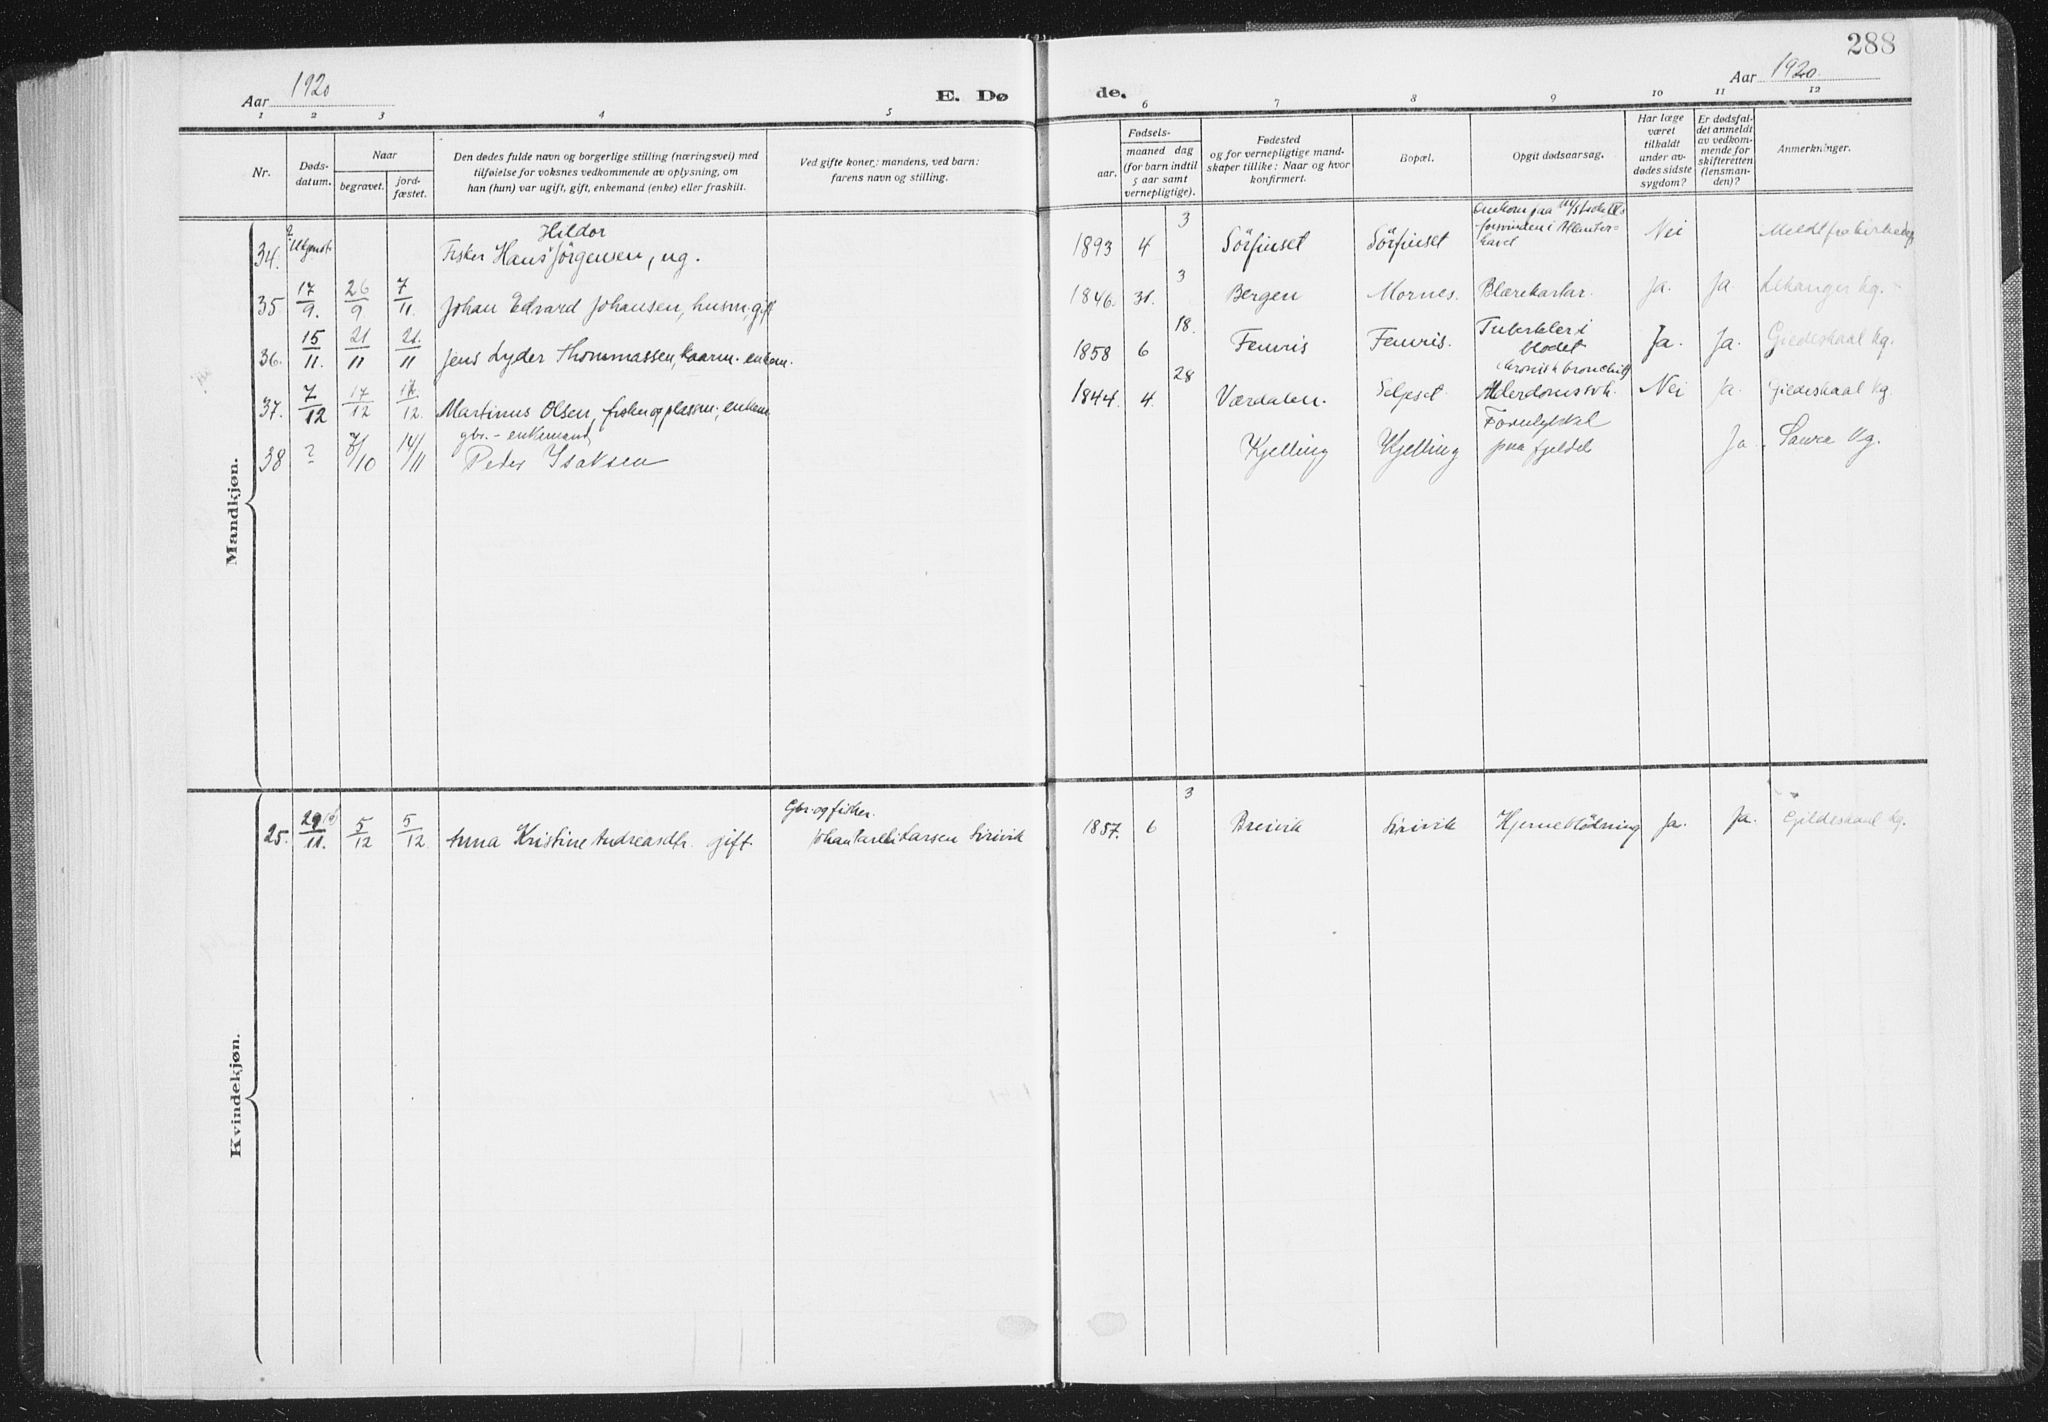 288
Aar 1920 E. Dø de. Aar 1920.
1 2 3 4 5 6 7 8 9 10 11 12
Nr.
Døds-
datum.
Naar
begravet.
jord-
fæstet.
Den dødes fulde navn og borgerlige stilling (næringsvei) med
tilføielse for voksnes vedkommende av oplysning, om
han (hun) var ugift, gift, enkemand (enke) eller fraskilt.
Ved gifte koner: mandens, ved barn:
farens navn og stilling.
Fødsels-
aar.
maaned dag
(for barn indtil
5 aar samt
vernepligtige).
Fødested
og for vernepligtige mand-
skaper tillike: Naar og hvor
konfirmert.
Bopæl.
Opgit dødsaarsag.
Har læge
været
tilkaldt
under av-
dødes sidste
sygdom?
Er dødsfal-
det anmeldt
av vedkom-
mende for
skifteretten
(lensman-
den)?
Anmerkninger.
Mandkjøn.
Hildor
34. ? Fisker Hans Jörgensen, ug. 1893 4 3 Sörfinset Sörfinset forsvinden i Atlanter-
havet Nei
35 17/9. 26/9 7/11 Johan Edvard Johansen, husm, gift 1846. 31. 3 Bergen Mornes. Blærekatar. Ja. Ja Kg.
36. 15/11. 21/11 21./11 Jens Lyder Thommassen, kaarm. enkem. 1858 6 18. Fenvis Fenvis. Tuberkler i
blodet Ja. Ja. Gildeskaal Kg.
kronisk bronchitt
37. 7/12 17/12 17/12. Martinus Olsen, fisker og plassm., enkem. 1844. 4. 28 Værdalen. Selpset Alderdomssvk. Nei Ja. Gildeskaal Kg.
gbr. - enkemand
38 ? 7/10 14/11 Peder Isaksen Kjelling Kjelling Forulykket
paa fjeldet Ja. Saura Kg.
Kvindekjøn.
Gbr. og fisker.
25. 29/11. 5/12 5/12 Anna Kristine Andreasdtr. gift. Larsen 1857. 6 3 Breivik Hjerneblödning Ja. Ja. Gildeskaal Kg.